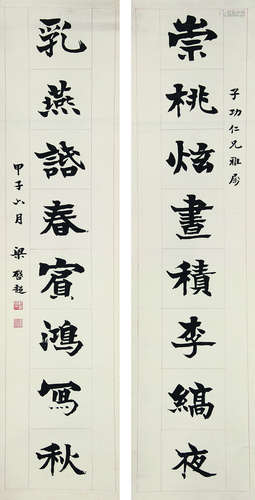 子功仁兄雅屬
崇桃炫晝積李縞夜
乳燕諧春賓鴻寫秋
甲子六月 梁啓超